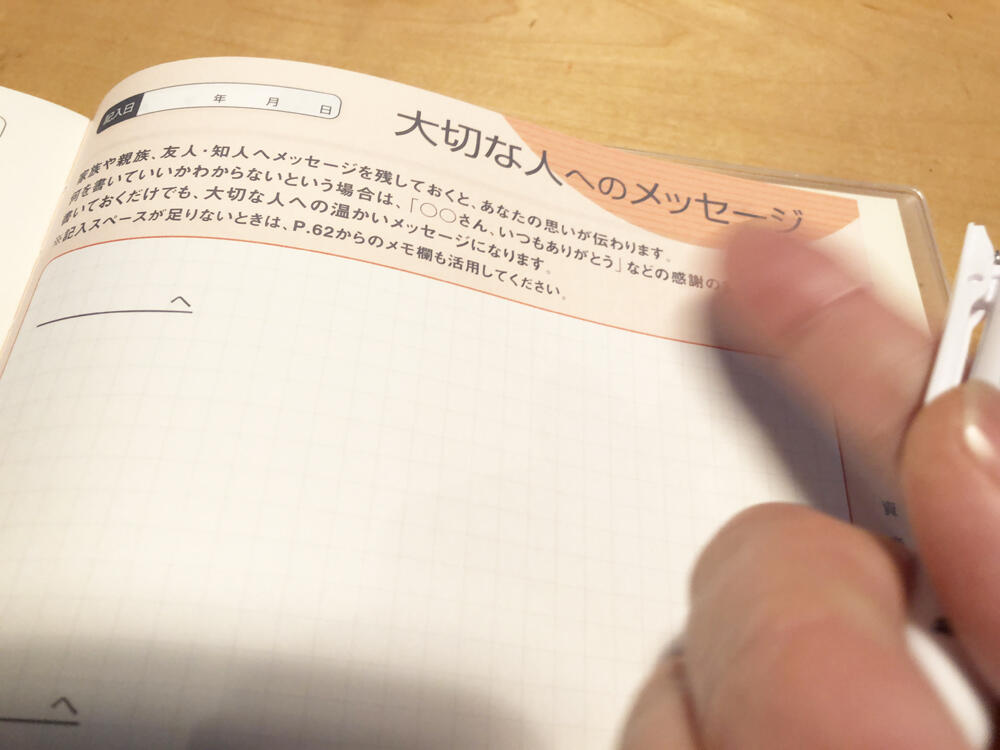 記入日 年 月 日
大切な人へのメッセージ
家族や親族、友人・知人へメッセージを残しておくと、あなたの思いが伝わります。
何を書いていいかわからないという場合は、「○○さん、いつもありがとう」などの感謝の
書いておくだけでも、大切な人への温かいメッセージになります。
※記入スペースが足りないときは、P.62からのメモ欄も活用してください。
へ
へ
資